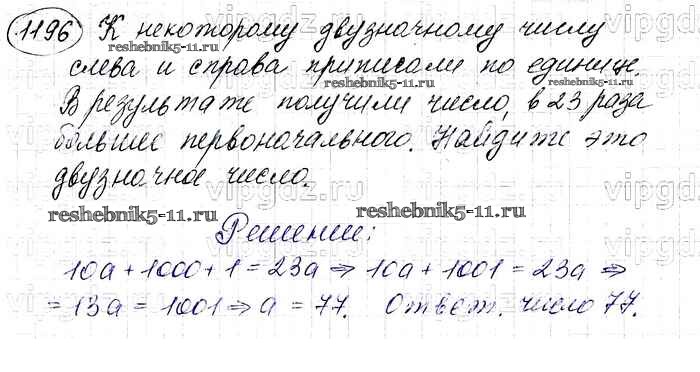 1196 К некоторому двузначному числу
reshebnik5-11.ru
слева и справа приписали по единице.
reshebnik5-11.ru
В результате получили число, в 23 раза
большее первоначального. Найдите это
двузначное число.
vipgdz.ru
reshebnik5-11.ru reshebnik5-11.ru
Решение:
10a + 1000 + 1 = 23a ⇒ 10a + 1001 = 23a ⇒
= 13a = 1001 ⇒ a = 77. Ответ. число 77.